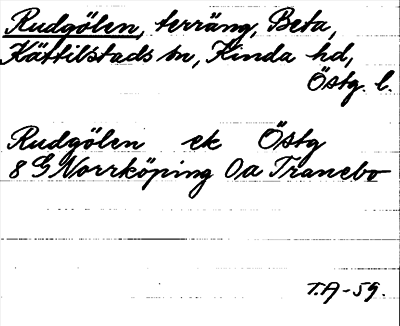 Rudgölen, terräng, Beta,
Kättilstads sn, Kinda hd,
Östg. l.
Rudgölen ek Östg
8 G Norrköping 0a Tranebo
T.A-59.